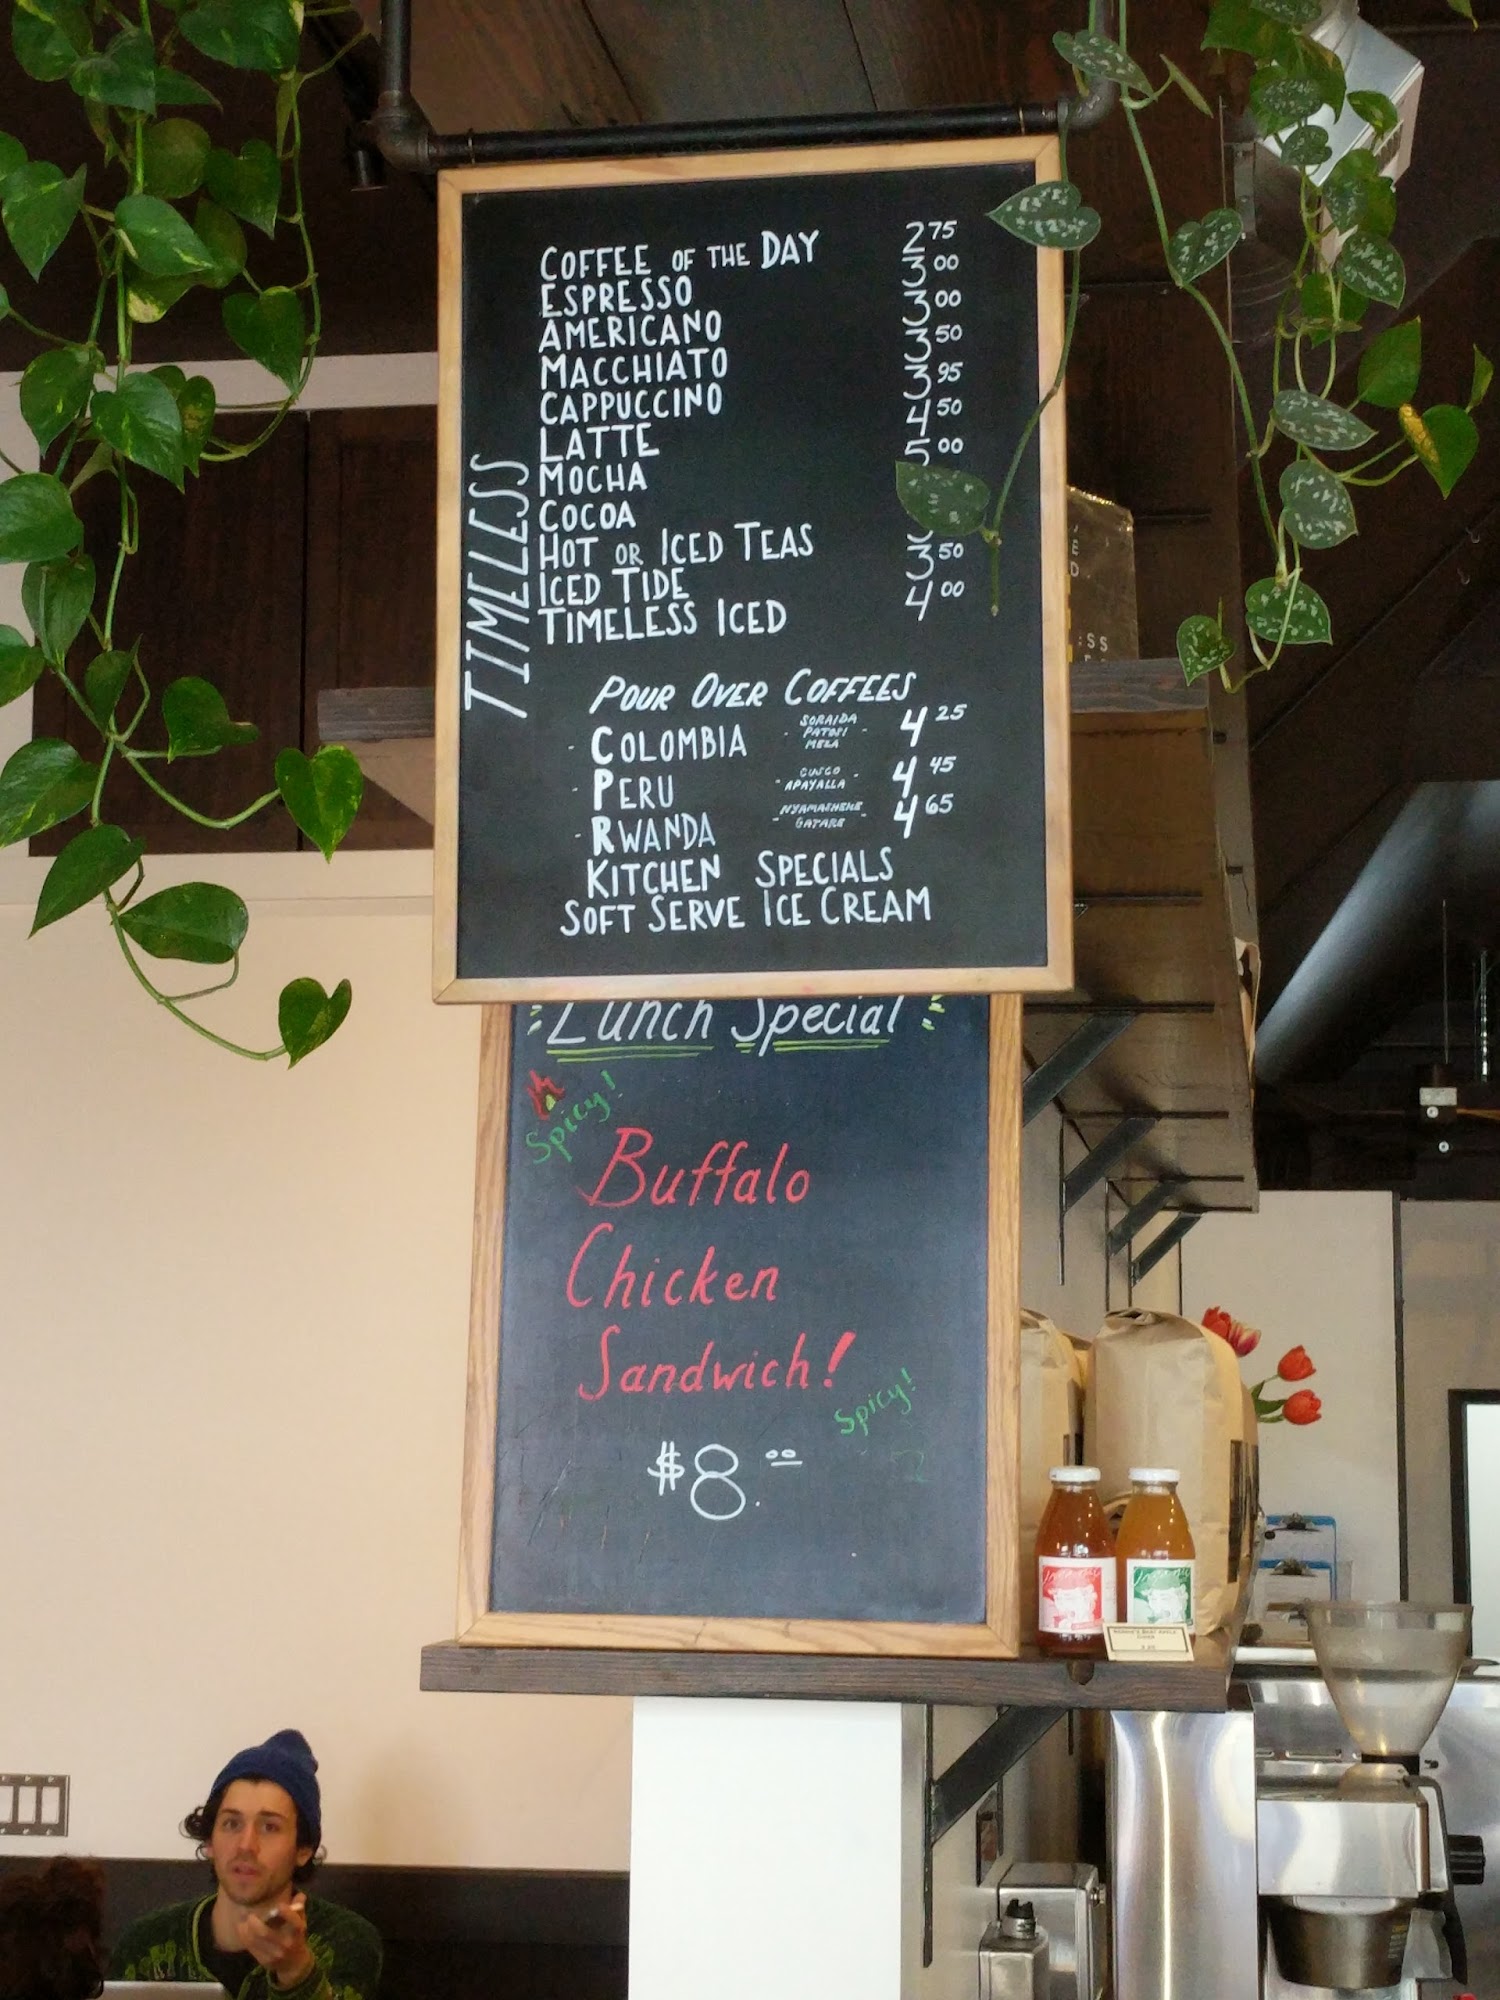 COFFEE OF THE DAY 2 75
ESPRESSO 3 00
AMERICANO 3 00
MACCHIATO 3 50
CAPPUCCINO 3 95
LATTE 4 50
MOCHA 5 00
COCOA
HOT OR ICED TEAS
ICED TIDE 3 50
TIMELESS ICED 4 00
TIMELESS
POUR OVER COFFEES
- COLOMBIA - SORAIDA PATOSI MEZA - 4 25
- PERU - CUSCO APAYALLA - 4 45
- RWANDA - NYAMASHEKE GATARE - 4 65
KITCHEN SPECIALS
SOFT SERVE ICE CREAM
Lunch Special
Spicy!
Buffalo
Chicken
Sandwich!
Spicy!
$8.00